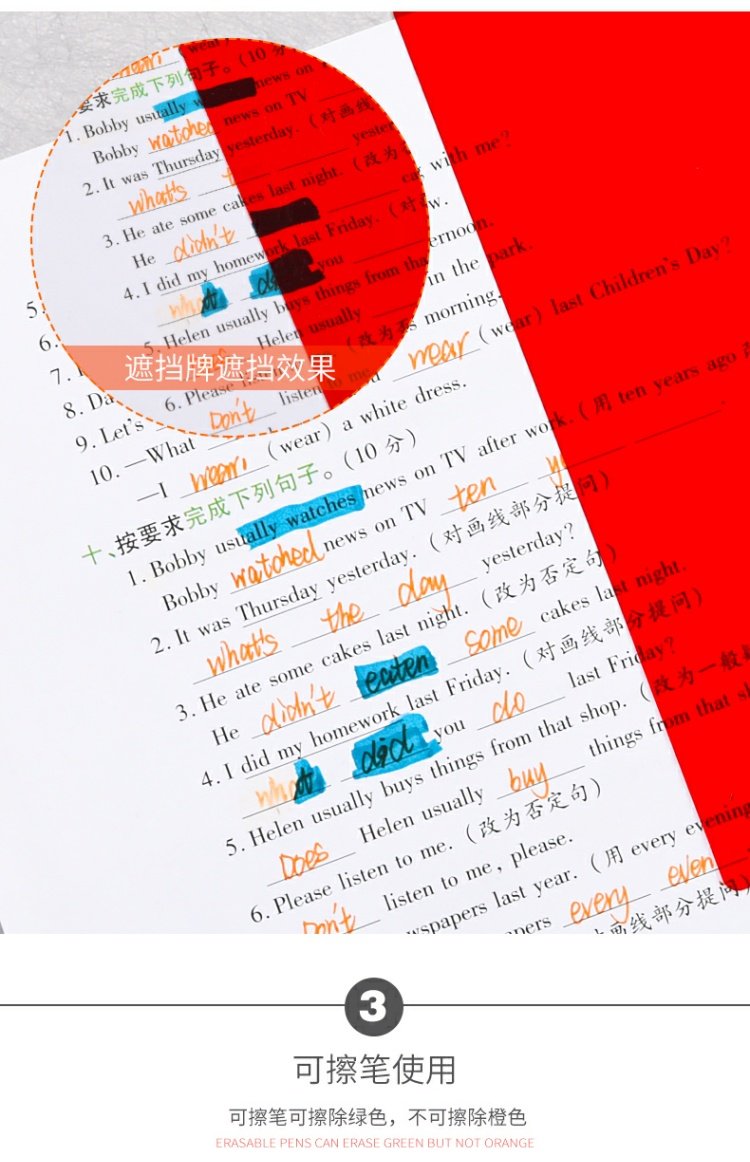 wear
要求完成下列句子。(10 分
1. Bobby usually w news on
Bobby watched news on TV
2. It was Thursday yesterday. (对画线
what's yester
3. He ate some cakes last night. (改为
He didn't
4. I did my homework last Friday. (对
what di you
5. Helen usually buys things from tha
Helen usually
6. Please (改为
Don't listen to me
遮挡牌遮挡效果
cat with me?
w.
ernoon.
5.
6. in the park.
7. morning.
8. Da wear (wear) last Children's Day?
9. Let's
10. —What (wear) a white dress.
—I wear,
十、按要求完成下列句子。(10 分)
1. Bobby usually watches news on TV after work. (用 ten years ago
Bobby watched news on TV ten y
2. It was Thursday yesterday. (对画线部分提问)
what's the day yesterday?
3. He ate some cakes last night. (改为否定句)
He didn't eaten some cakes last night.
4. I did my homework last Friday. (对画线部分提问)
what did you do last Friday?
5. Helen usually buys things from that shop. (改为一般
Does Helen usually buy things from that sh
6. Please listen to me. (改为否定句)
Don't listen to me, please.
wspapers last year. (用 every evening
pers every even
对画线部分提问
3
可擦笔使用
可擦笔可擦除绿色，不可擦除橙色
ERASABLE PENS CAN ERASE GREEN BUT NOT ORANGE